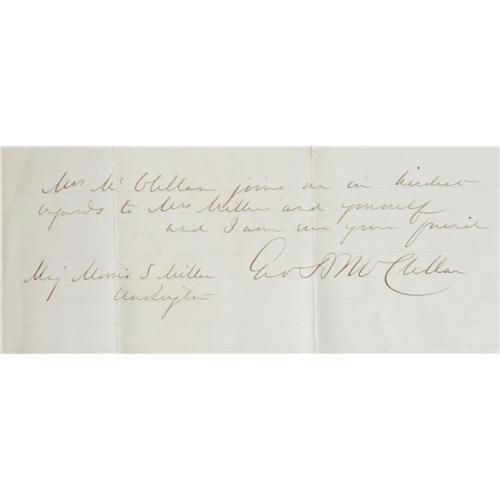 Mrs McClellan joins me in kindest
regards to Mrs Miller and yourself
and I am ever your friend
Geo B McClellan
Maj Morris S. Miller
Washington